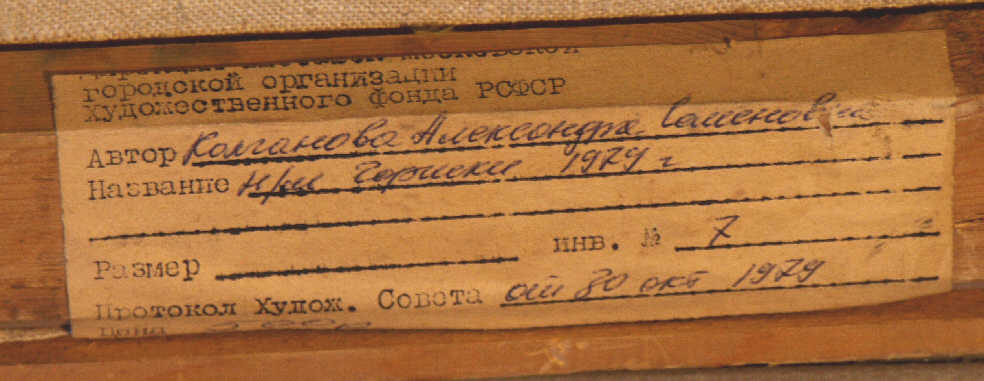 Дирекция выставок московской
городской организации
художественного фонда РСФСР
Автор Колганова Александра Семеновна
Название 1979 г
Размер инв. № 7
Протокол Худож. Совета от 30 окт 1979
Цена